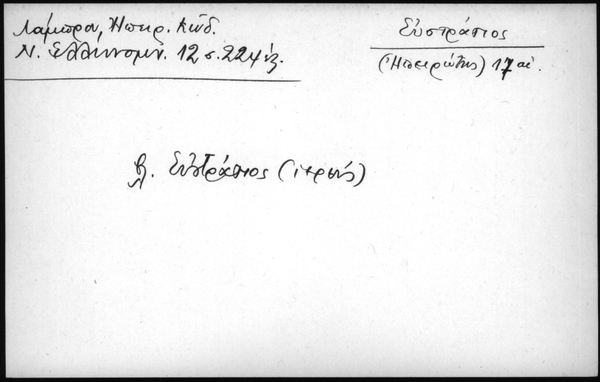 Λάμπρου, Ηπειρ. Κώδ.
Ν. Ἑλληνομν. 12 σ. 224 ἑξ.
Εὐστράτιος
(Ἠπειρώτης) 17 αἰ.
βλ. Εὐστράτιος (ἱερεύς)